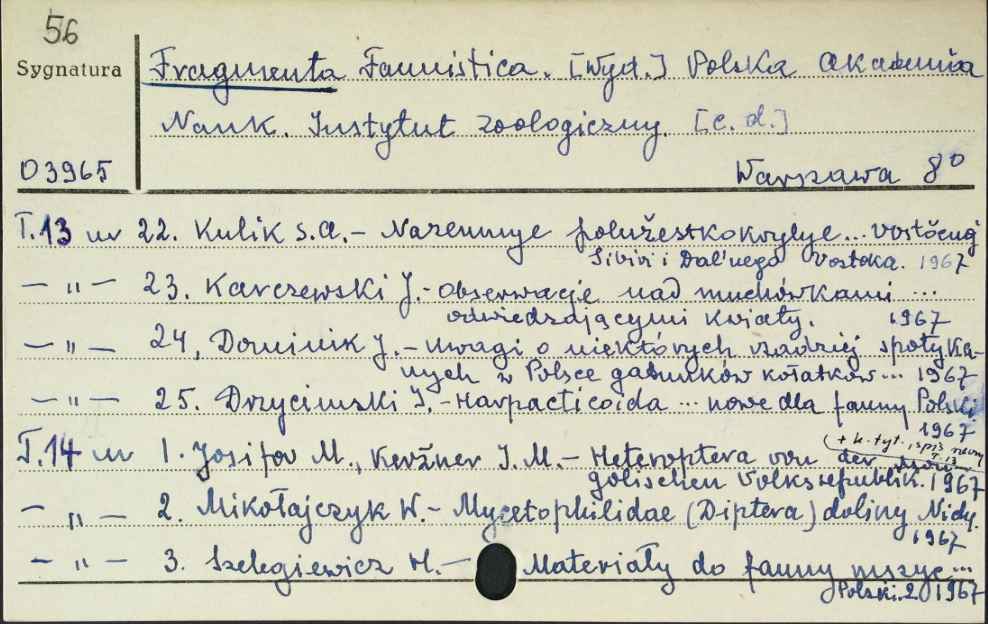 56
Sygnatura
Fragmenta Faunistica. [Wyd.] Polska Akademia
Nauk. Instytut Zoologiczny. [c. d.]
O3965
Warszawa 8º
T.13 nr 22. Kulik S.A. - Nazemnye polužestkokrylye... vostočnoj
Sibiri i Dal'nego Vostoka. 1967
— " — 23. Karczewski J. - Obserwacje nad muchówkami ...
odwiedzającymi kwiaty. 1967
— " — 24, Dominik J. - Uwagi o niektórych rzadziej spotyka-
nych w Polsce gatunków kołatków... 1967
— " — 25. Drzycimski I. - Harpacticoida ... nowe dla fauny Polski
1967
(+ k. tyt., spis
T.14 nr 1. Josifov M., Keržner I. M. - Heteroptera von der Mon-
golischen Volksrepublik. 1967
— " — 2. Mikołajczyk W. - Mycetophilidae (Diptera) doliny Nidy.
1967
— " — 3. Szelegiewicz H. - Materiały do fauny mszyc...
Polski. 2. 1967